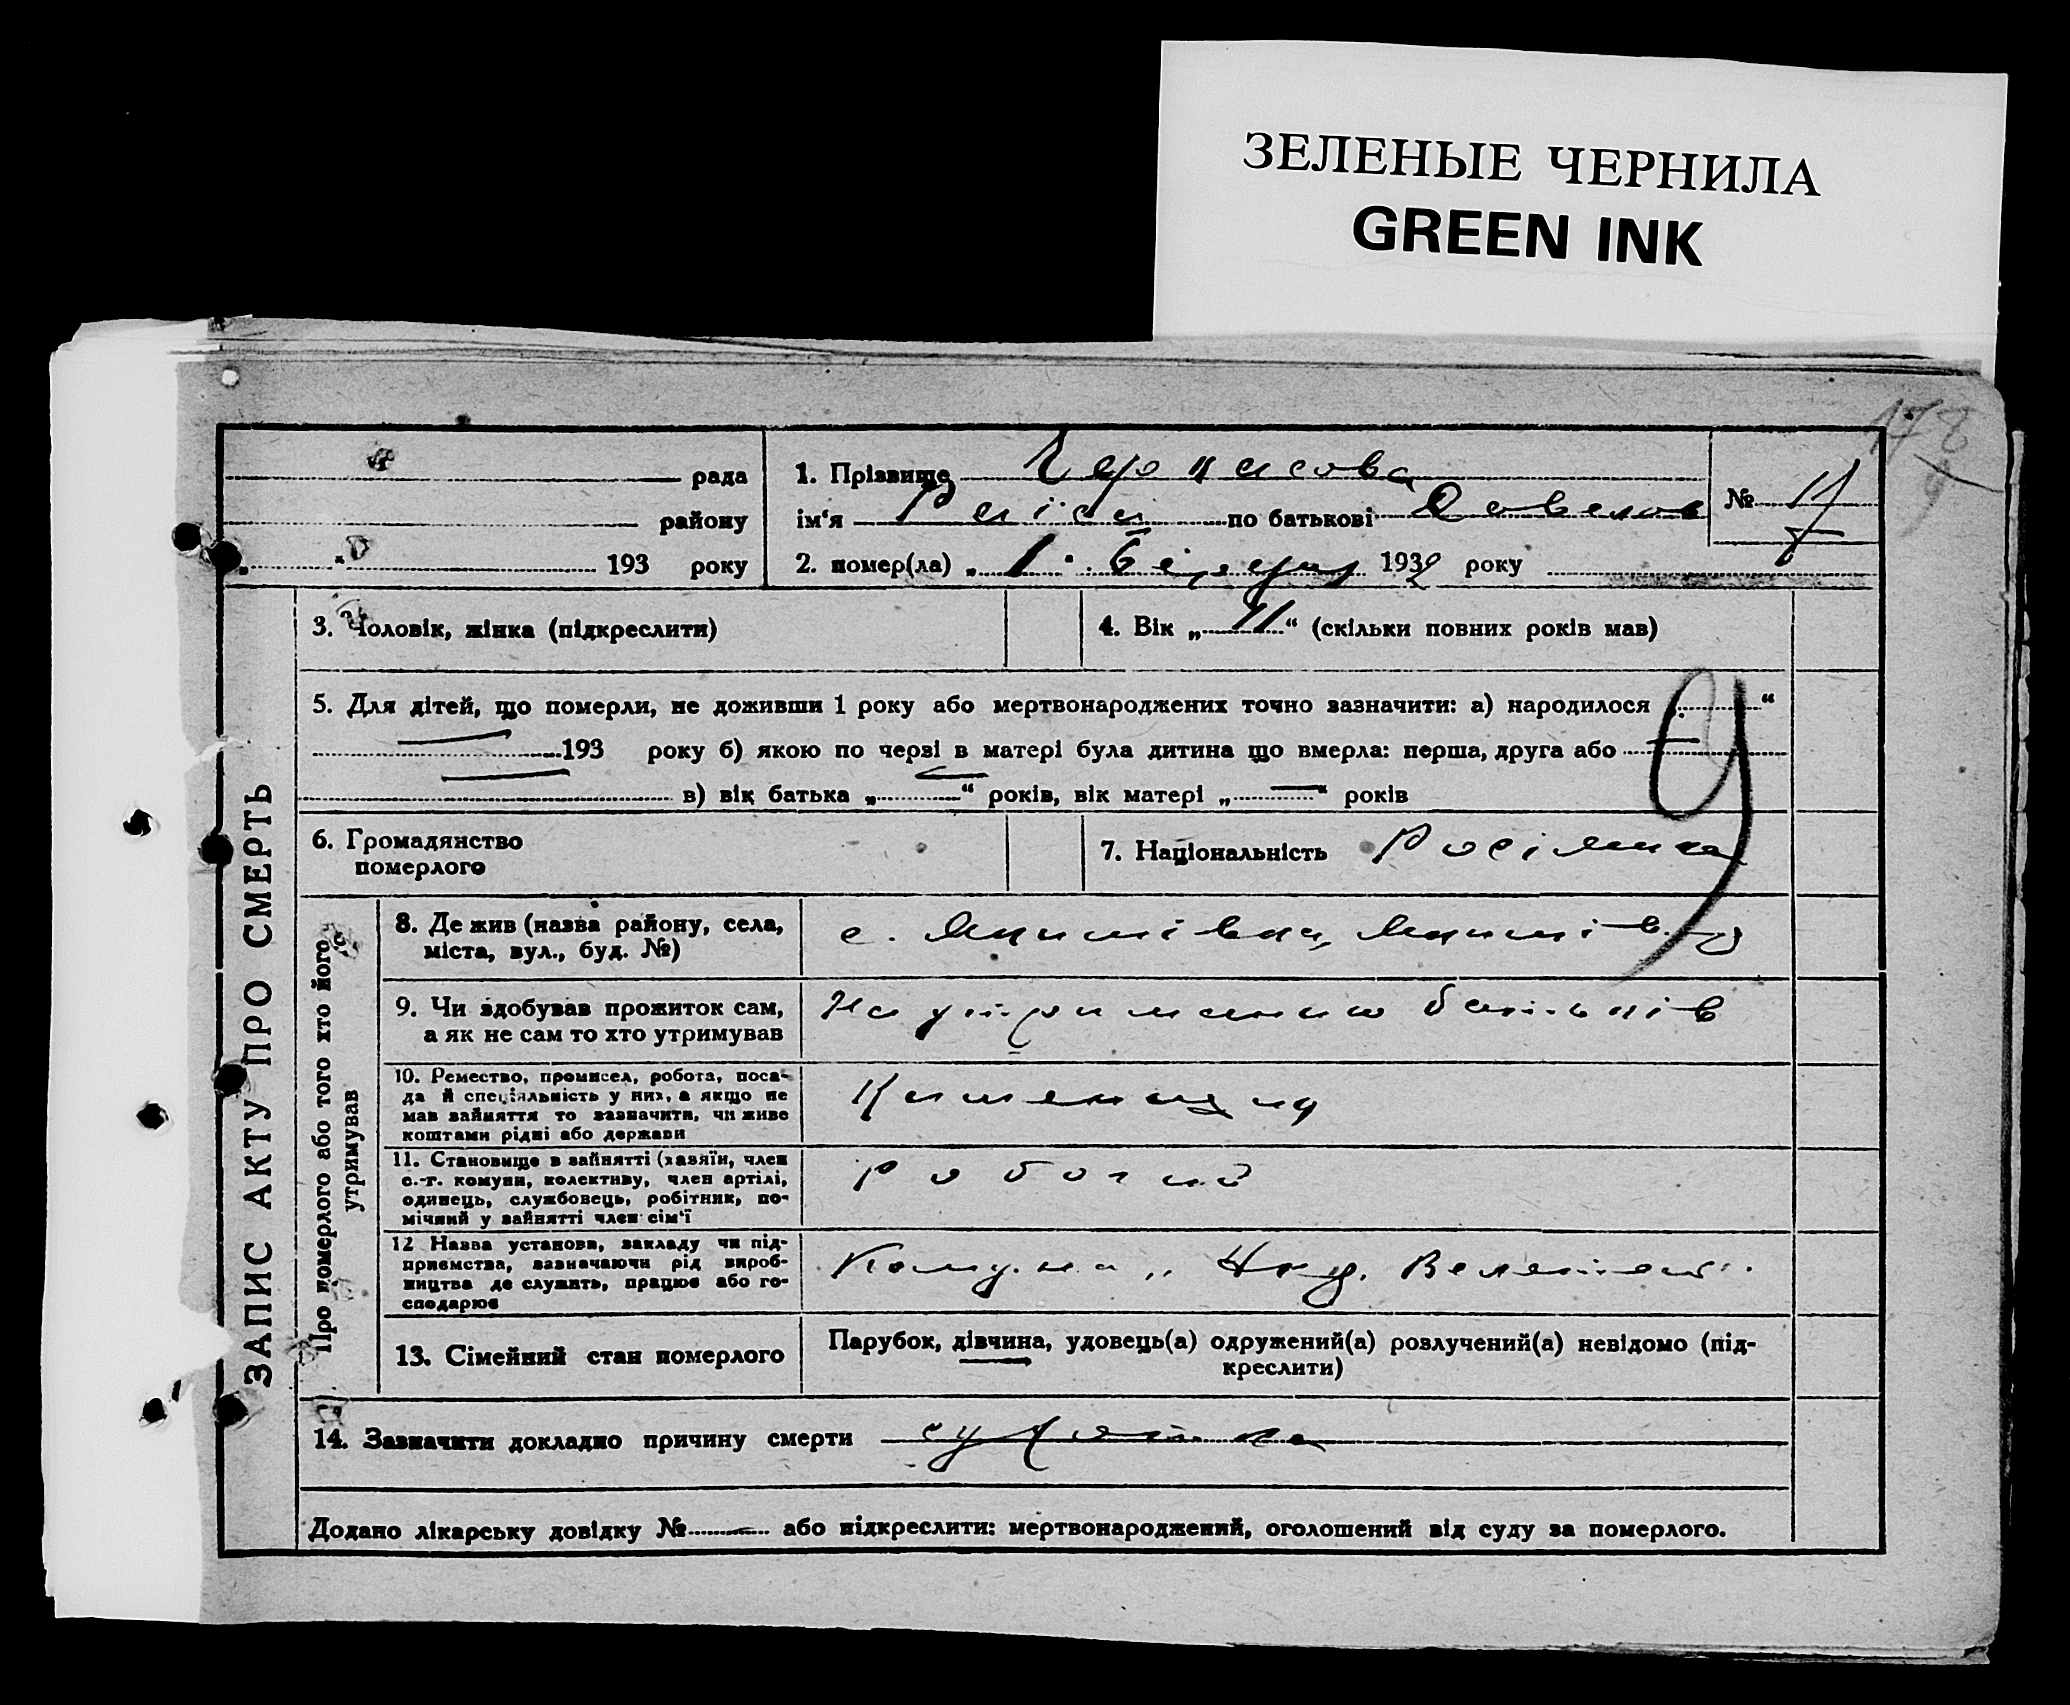 ЗЕЛЕНЫЕ ЧЕРНИЛА
GREEN INK
178
рада
району
193 року
1. Прізвище Черкасова
ім'я Раїса по батькові
2. помер(ла) „ 1 " березня 1932 року
№ 11
ЗАПИС АКТУ ПРО СМЕРТЬ
3. Чоловік, жінка (підкреслити)
4. Вік „ 11 “ (скільки повних років мав)
5. Для дітей, що померли, не доживши 1 року або мертвонароджених точно зазначити: а) народилося „ “
193 року б) якою по черзі в матері була дитина що вмерла: перша, друга або
в) вік батька „ — “ років, вік матері „ — “ років
6. Громадянство
померлого
7. Національність Росіянка
Про померлого або того хто його
утримував
8. Де жив (назва району, села,
міста, вул., буд. №)
с.
9. Чи здобував прожиток сам,
а як не сам то хто утримував
На утриманню батьків
10. Ремество, промисел, робота, поса-
да й спеціяльність у них, а якщо не
мав зайняття то зазначити, чи живе
коштами рідні або держави
11. Становище в зайнятті (хазяїн, член
с.-г. комуни, колективу, член артілі,
одинець, службовець, робітник, по-
мічний у зайнятті член сім'ї
робочий
12 Назва установи, закладу чи під-
приємства, зазначаючи рід вироб-
ництва де служить, працює або го-
сподарює
Комуна „
13. Сімейний стан померлого
Парубок, дівчина, удовець(а) одружений(а) розлучений(а) невідомо (під-
креслити)
14. Зазначити докладно причину смерти сухотка
Додано лікарську довідку № — або підкреслити: мертвонароджений, оголошений від суду за померлого.